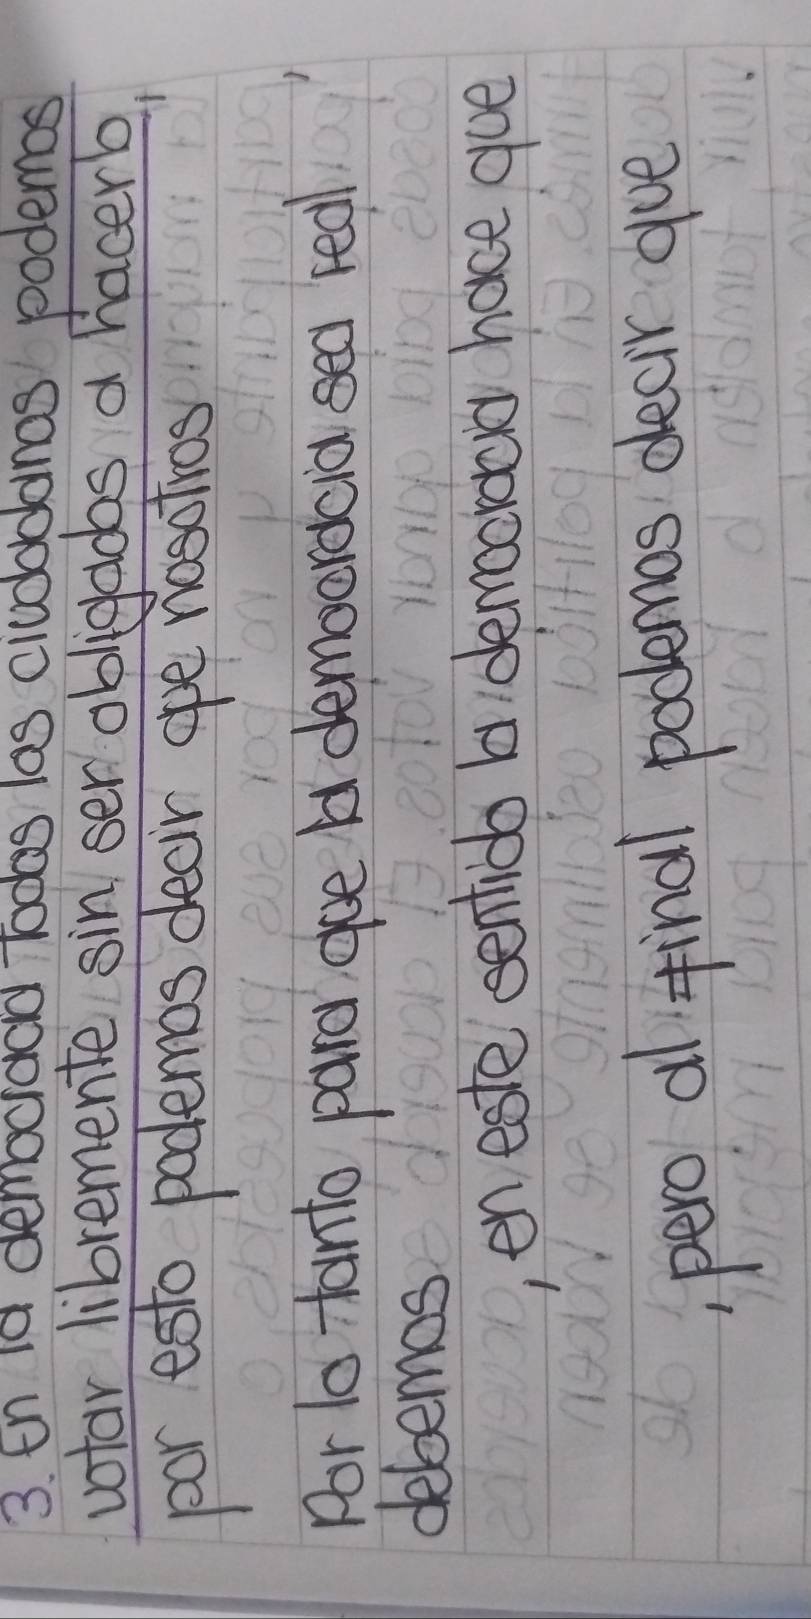 3. En la democracia Todos los ciudadanos podemos
votar libremente sin ser obligados a hacerlo,
por esto podemos decir que nosotros
Por lo Tanto para que la democracia sea real,
debemos
, en este sentido la democracia hace que
, pero al final podemos decir que
.